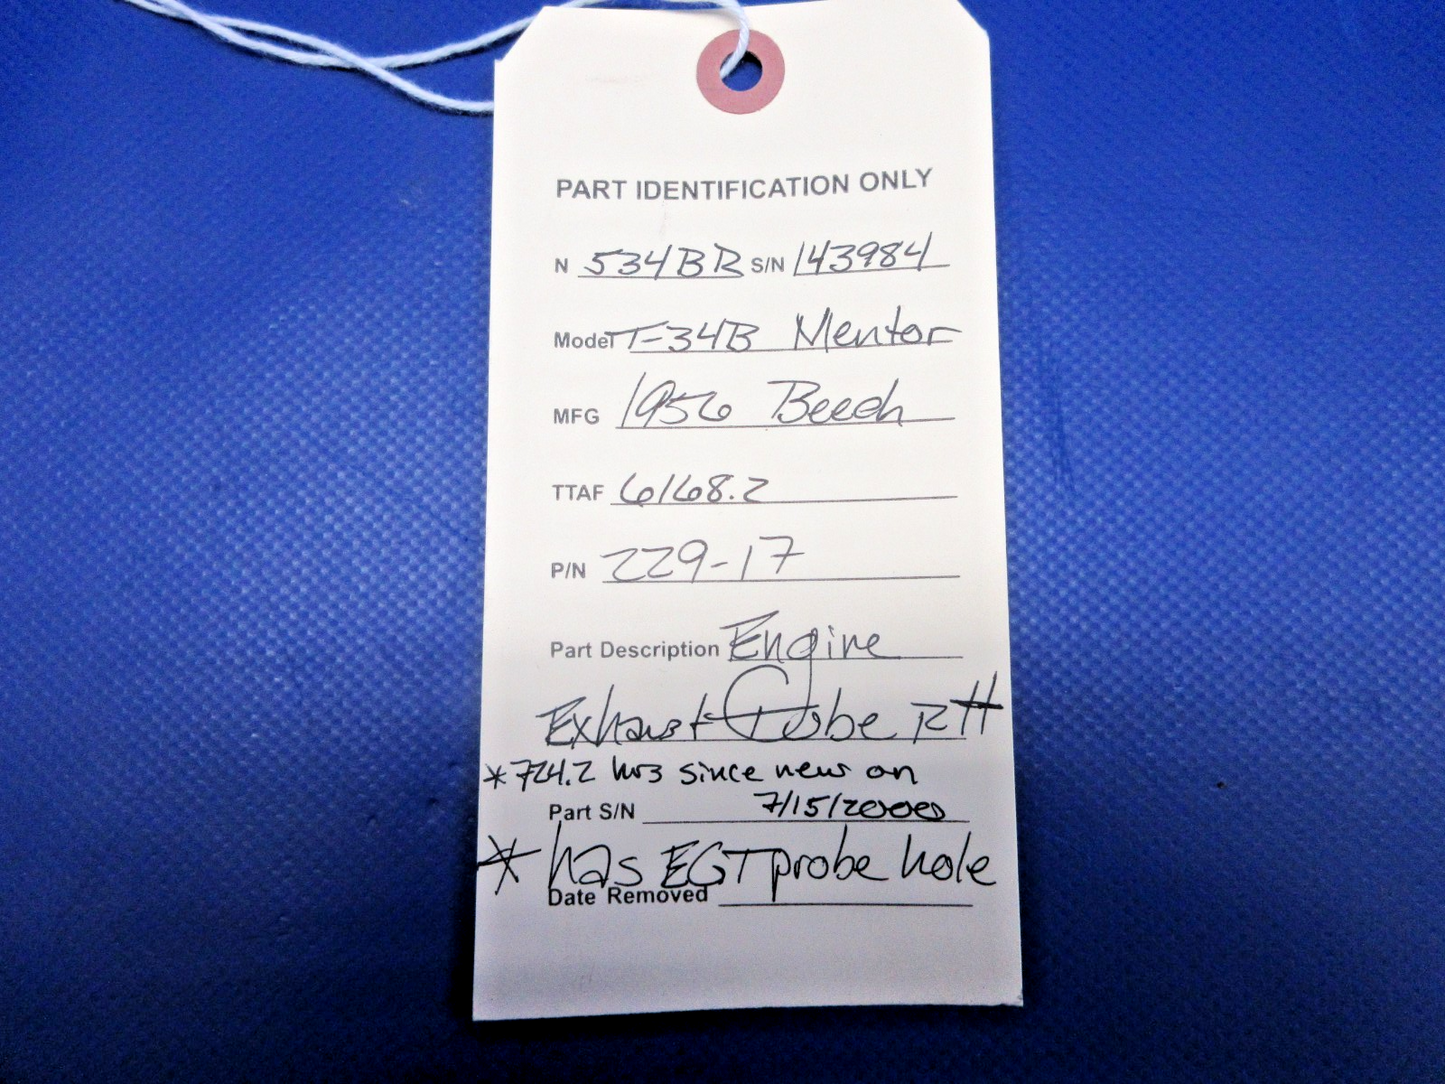 PART IDENTIFICATION ONLY
N 534BR S/N 143984
Model T-34B Mentor
MFG 1956 Beech
TTAF 6168.2
P/N 229-17
Part Description Engine
Exhaust Tube RH
*724.2 hrs since new on
Part S/N 7/15/2000
* has EGT probe hole
Date Removed